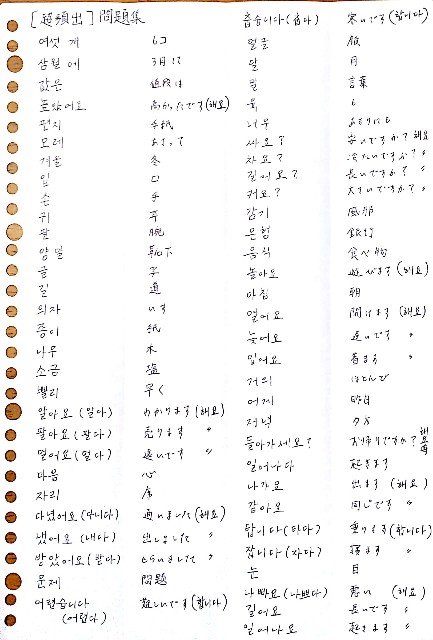 [超頻出] 問題集
여섯 개 6コ
삼월 에 3月に
값은 値段は
높았어요 高かったです(해요)
편지 手紙
모레 あさって
겨울 冬
입 口
손 手
귀 耳
팔 腕
양말 靴下
글 字
길 道
의자 いす
종이 紙
나무 木
소금 塩
빨리 早く
알아요 (알다) わかります (해요)
팔아요 (팔다) 売ります 〃
멀어요 (멀다) 遠いです 〃
마음 心
자리 席
다녔어요 (다니다) 通いました (해요)
냈어요 (내다) 出しました 〃
받았어요 (받다) もらいました 〃
문제 問題
어렵습니다 難しいです (합니다)
(어렵다)
춥습니다 (춥다) 寒いです (합니다)
얼굴 顔
달 月
말 言葉
도 も
너무 あまりにも
싸요? 安いですか? 해요
차요? 冷たいですか? 〃
길어요? 長いですか? 〃
커요? 大きいですか? 〃
감기 風邪
은행 銀行
음식 食べ物
놀아요 遊びます (해요)
아침 朝
열어요 開けます (해요)
늦어요 遅いです 〃
입어요 着ます 〃
거의 ほとんど
어제 昨日
저녁 夕方
돌아가세요? お帰りですか? 해요
일어나다 起きます
나가요 出ます (해요)
같아요 同じです 〃
탑니다 (타다) 乗ります (합니다)
잡니다 (자다) 寝ます 〃
눈 目
나빠요 (나쁘다) 悪い (해요)
길어요 長いです 〃
일어나요 起きます 〃